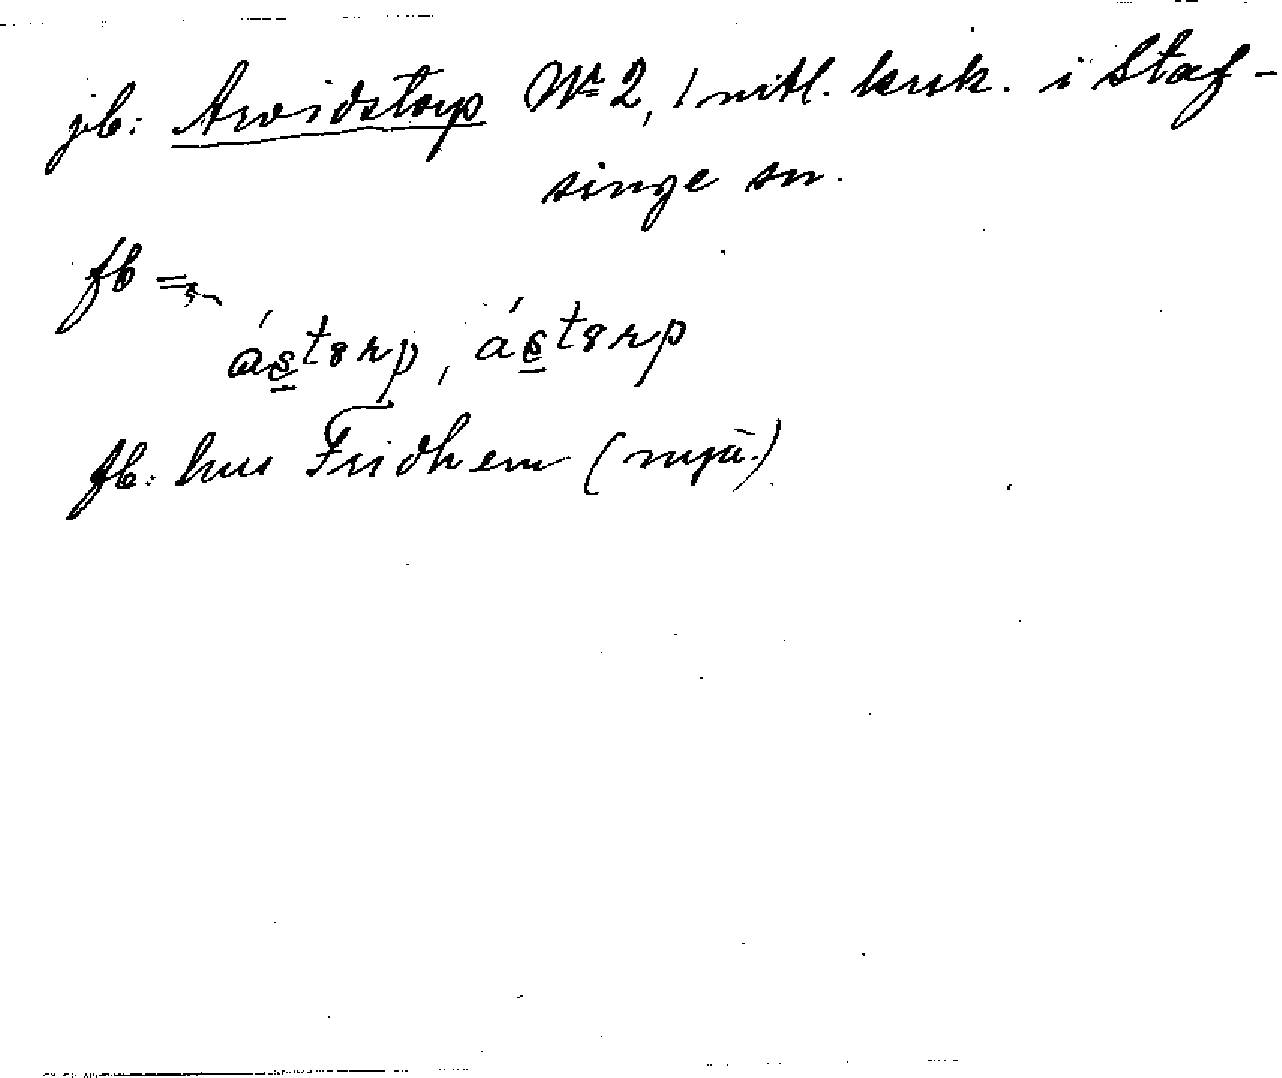 jb: Arvidstorp Nº 2, 1 mtl. krk. i Staf-
singe sn.
fb =
ástorp, ástorp
fb: hus Fridhem (nyå.)